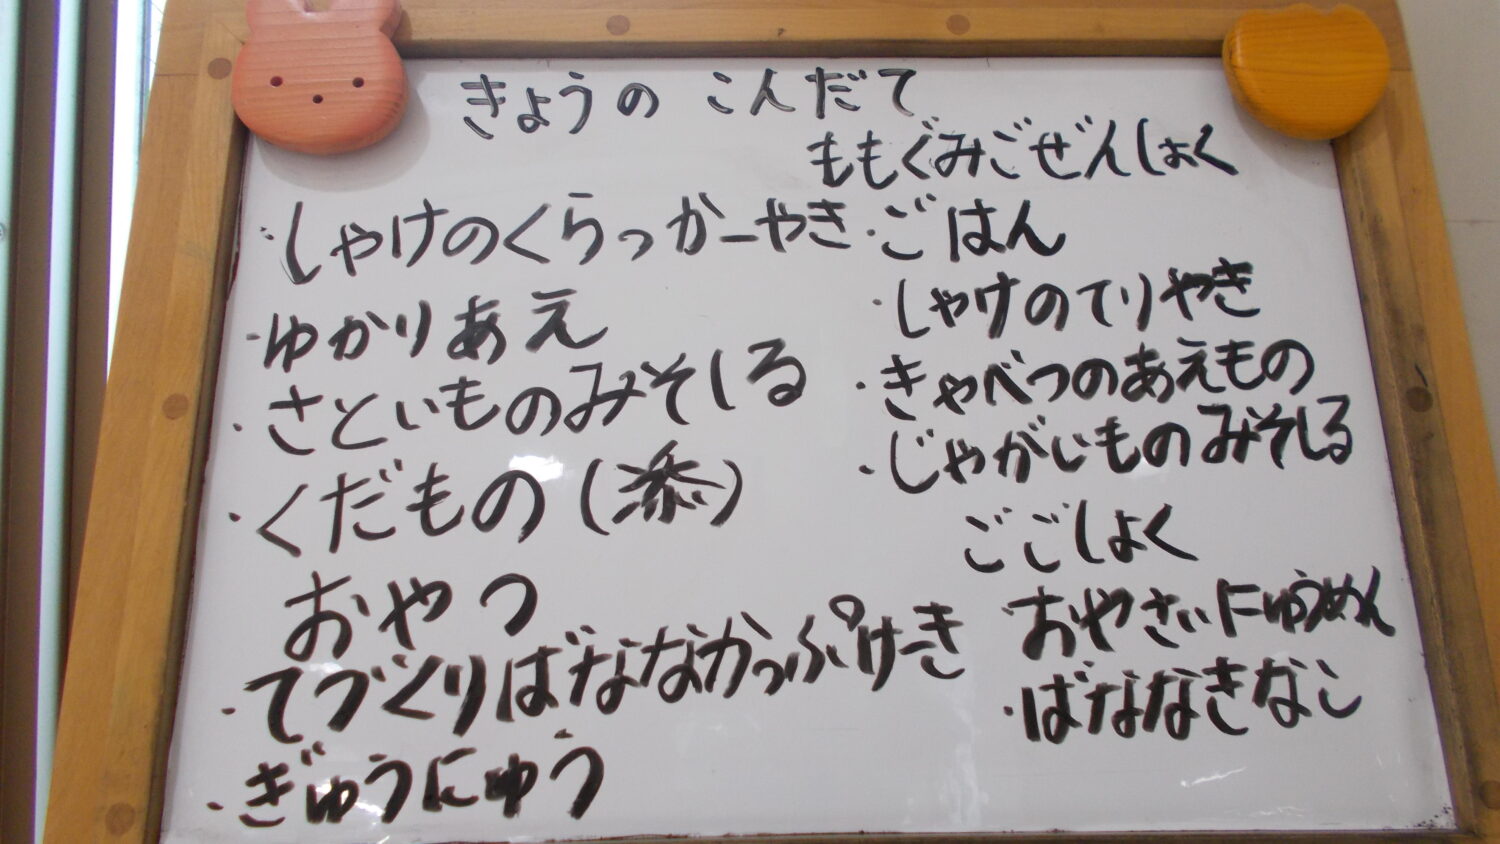 きょうの こんだて
・しゃけのくらっかーやき
・ゆかりあえ
・さといものみそしる
・くだもの()
おやつ
・てづくりばななかっぷけーき
・ぎゅうにゅう
ももぐみごぜんしょく
・ごはん
・しゃけのてりやき
・きゃべつのあえもの
・じゃがいものみそしる
ごごしょく
・おやさいにゅうめん
・ばななきなこ